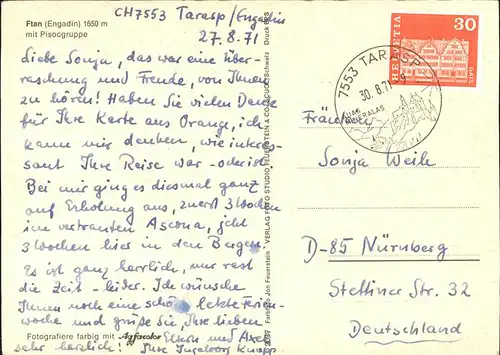 Ftan (Engadin) 1650 m
mit Pisocgruppe
CH7553 Tarasp/Engadin
27.8.71
Liebe Sonja, das war eine Über-
raschung und Freude, von Ihnen
zu hören! Haben Sie vielen Dank
für Ihre Karte aus Orange, ich
kann mir denken, wie interes-
sant Ihre Reise war - oder ist
Bei mir ging es diesmal ganz
auf Erholung aus, zuerst 3 Wochen
im vertrauten Ascona, jetzt
3 Wochen hier in den Bergen.
Es ist ganz herrlich, nur rast
die Zeit - leider. Ich wünsche
Ihnen noch eine schöne letzte Ferien-
woche und grüße Sie, Ihre lieben
Eltern und Axel
sehr herzlich! Ihre Ingeborg Knapp
Fotografiere farbig mit Agfacolor
HELVETIA
30
GAIS
7553 TARASP
30.8.71
Fräulein
Sonja Weih
D-85 Nürnberg
Stettiner Str. 32
Deutschland